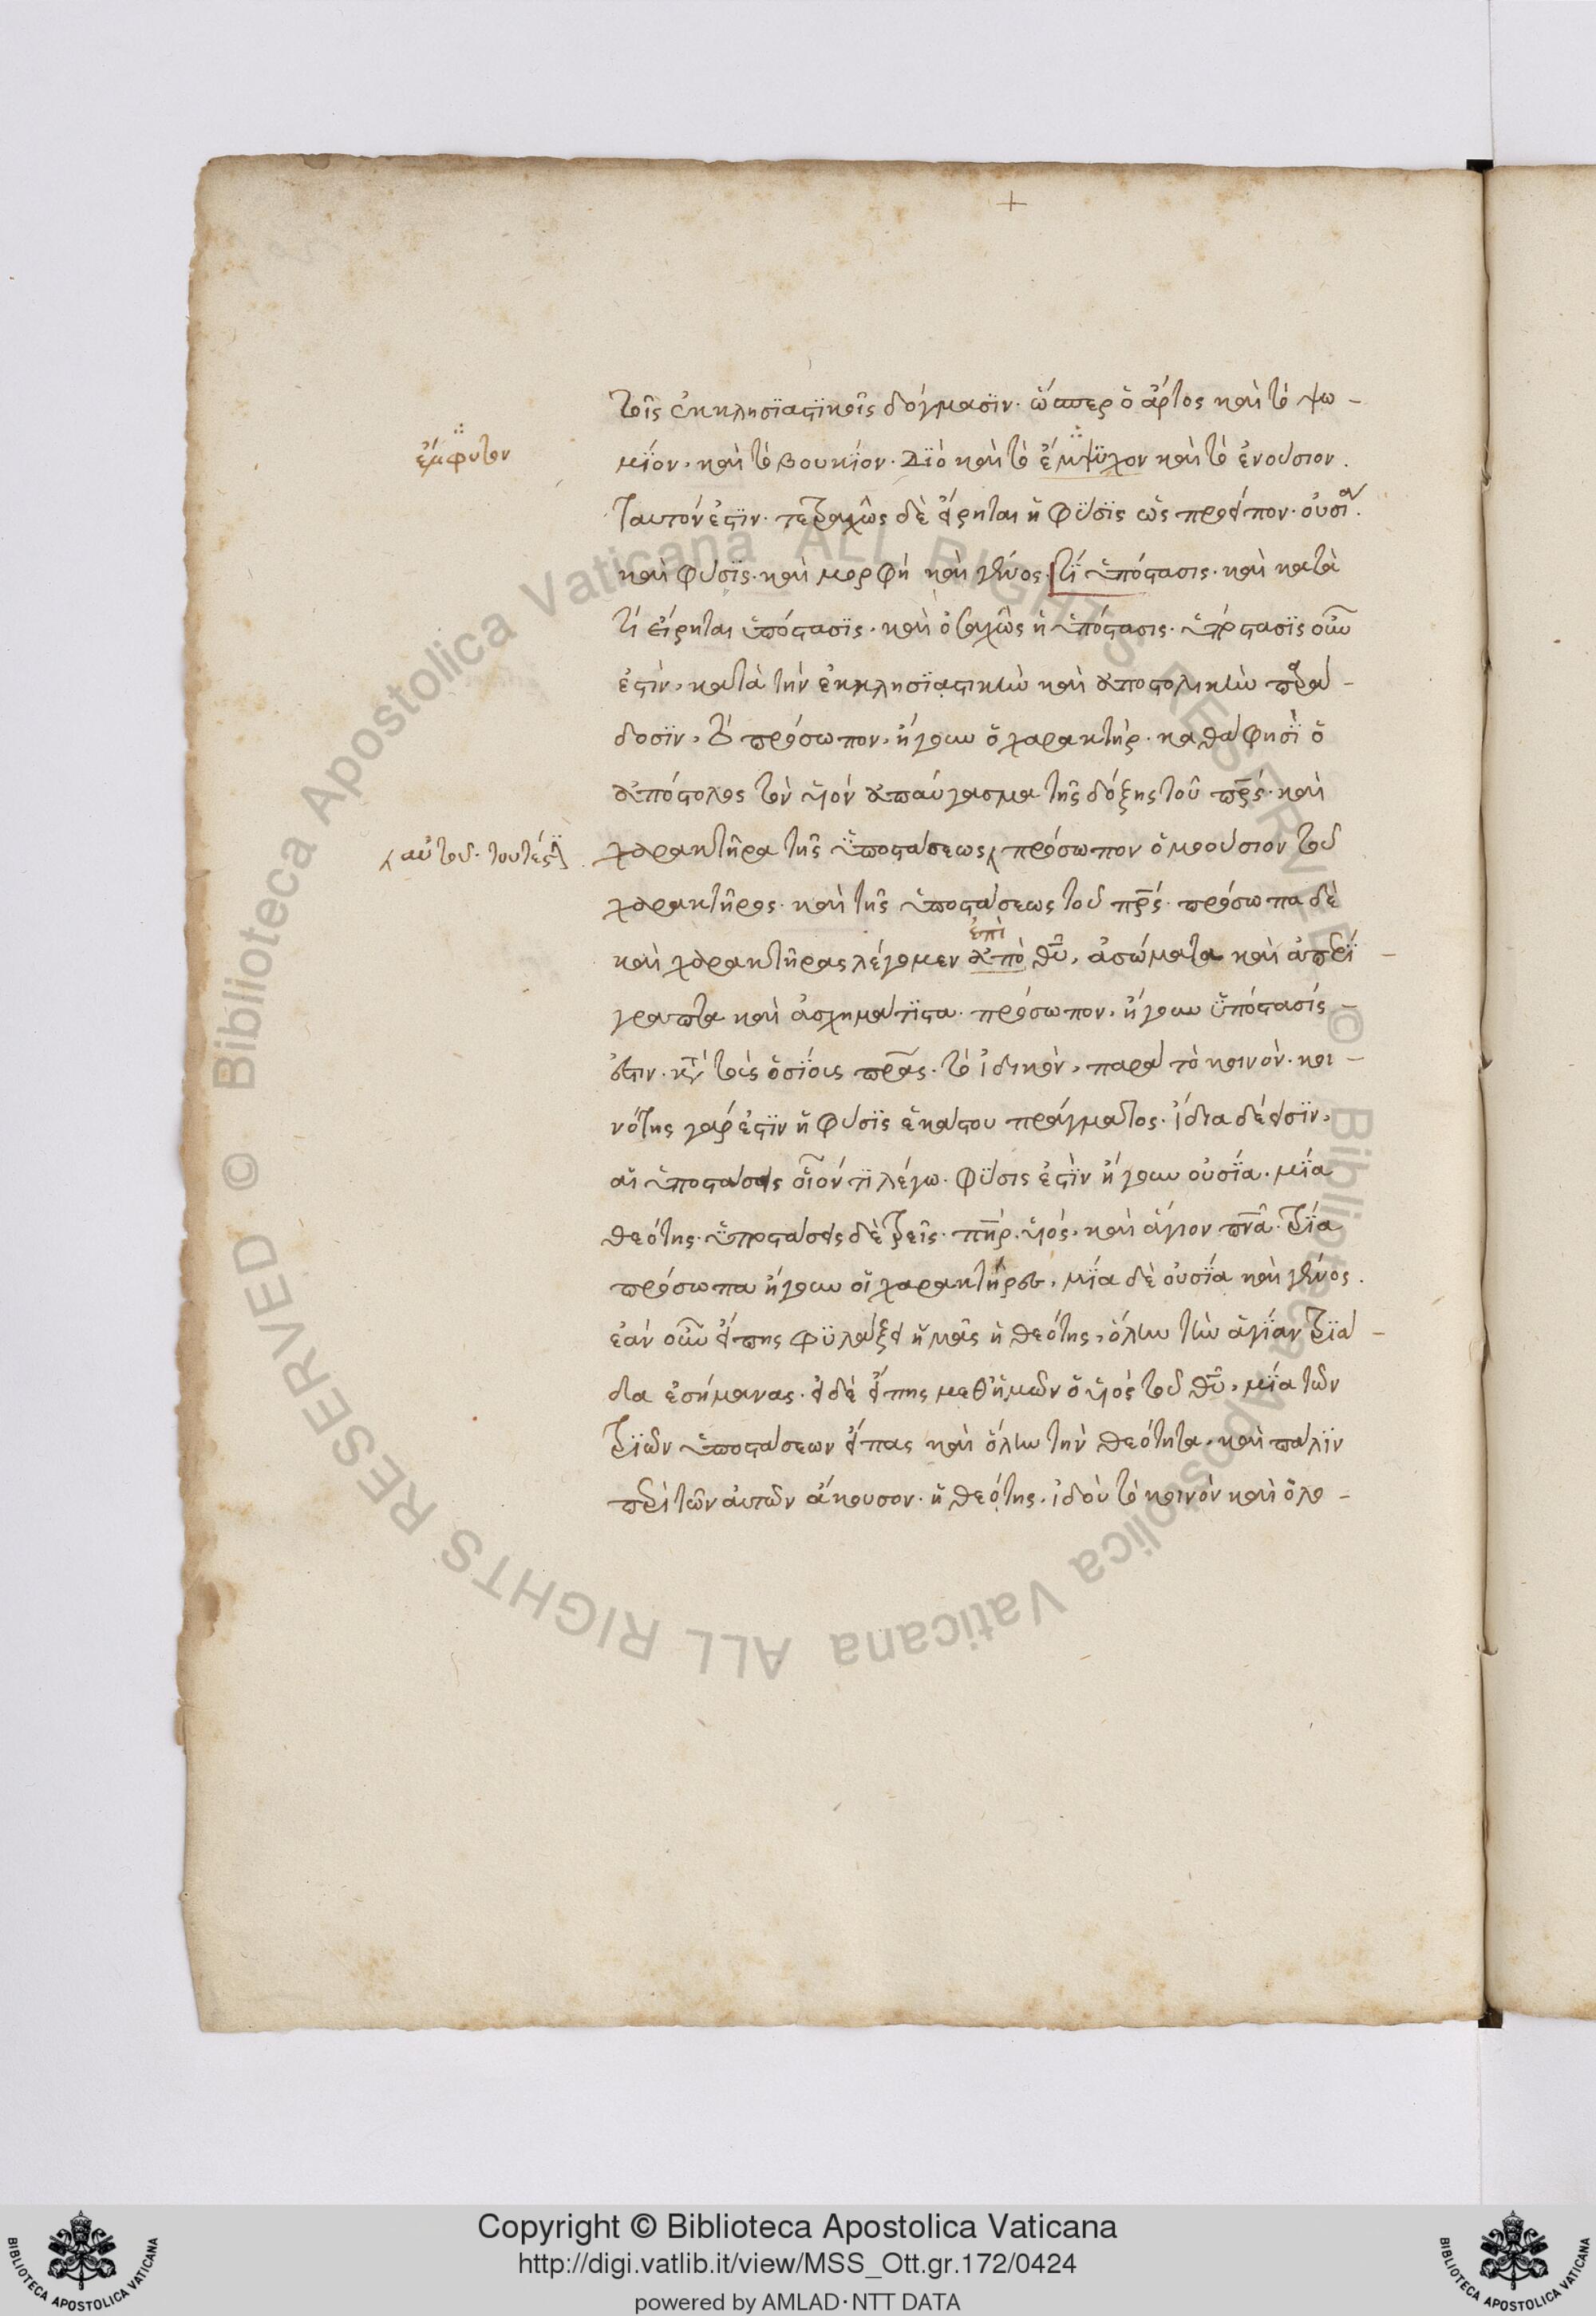 +
τοῖς ἐκκλησϊαςϊκοῖς δόγμασϊν. ὥσπερ ὁ ἄρτος καὶ τὸ ψω-
ἔμφυτον
μϊον, καὶ τὸ βουκϊον. Διὸ καὶ τὸ ἔμψϋχον καὶ τὸ ἐνούσιον.
ταυτόν ἐςϊν. τετραχῶς δὲ εἴρηται ἡ φϋσϊς ὡς προεῖπον. οὐσία.
καὶ φύσϊς. καὶ μορφὴ καὶ γένος. τί ὑπόςασις. καὶ κατὰ
τί εἴρηται ὑπόςασϊς. καὶ ὁσαχῶς ἡ ὑπόςασις. ὑπόςασϊς οὖν
ἐςὶν, κατὰ τὴν ἐκκλησϊαςικὴν καὶ ἀποςολικὴν παρά-
δοσϊν, τὸ πρόσωπον, ἤγουν ὁ χαρακτήρ. καθά φησϊ ὁ
ἀπόςολος τὸν υἱόν ἀπαύγασμα τῆς δόξης τοῦ πρς. καὶ
αὐτοῦ. τουτές
χαρακτῆρα τῆς ὑποςάσεως πρόσωπον ὁμοούσιον τοῦ
χαρακτῆρος. καὶ τῆς ὑποςάσεως τοῦ πρς. πρόσωπα δὲ
ἐπὶ
καὶ χαρακτῆρας λέγομεν ἀπὸ θυ, ἀσώματα καὶ ἀπερί-
γραπτα καὶ ἀσχημάτιςα. πρόσωπον, ἤγουν ὑπόςασίς-
ἐςιν. κατὰ τοὺς ὁσϊους πρας. τὸ ἰδικὸν, παρὰ τὸ κοινὸν. κοι-
νότης γάρ ἐςϊν ἡ φύσϊς ἑκάςου πράγματος. ἴδια δέ εἰσϊν,
αἱ ὑποςάσεις οἷόν τι λέγω. φϋσις ἐςὶν ἤγουν οὐσϊα. μϊα
θεότης. ὑποςάσεις δὲ τρεῖς. πηρ. υἱός, καὶ ἅγιον πνα. τρϊα
πρόσωπα ἤγουν οἱ χαρακτῆρες, μϊα δὲ οὐσϊα καὶ γένος.
ἐάν οὖν εἴπης φϋλάξει ἡμᾶς ἡ θεότης, ὅλην τὴν ἁγίαν τρϊά-
δα ἐσήμανας. εἰ δὲ εἴπης μεθ ἡμῶν ὁ υἱός τοῦ θυ, μϊα τῶν
τρϊῶν ὑποςάσεων εἶπας καὶ ὅλην τὴν θεότητα. καὶ πάλϊν
περὶ τῶν αὐτῶν ἄκουσον. ἡ θεότης. ἰδοὺ τὸ κοινὸν καὶ ὅλο-
Copyright © Biblioteca Apostolica Vaticana
http://digi.vatlib.it/view/MSS_Ott.gr.172/0424
powered by AMLAD·NTT DATA
BIBLIOTECA APOSTOLICA VATICANA
BIBLIOTECA APOSTOLICA VATICANA
© Biblioteca Apostolica Vaticana ALL RIGHTS RESERVED
© Biblioteca Apostolica Vaticana ALL RIGHTS RESERVED